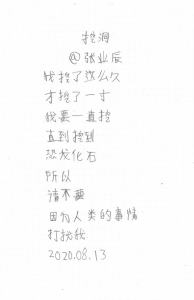 挖洞
@张业辰
我挖了这么久
才挖了一寸
我要一直挖
直到挖到
恐龙化石
所以
请不要
因为人类的事情
打扰我
2020.08.13